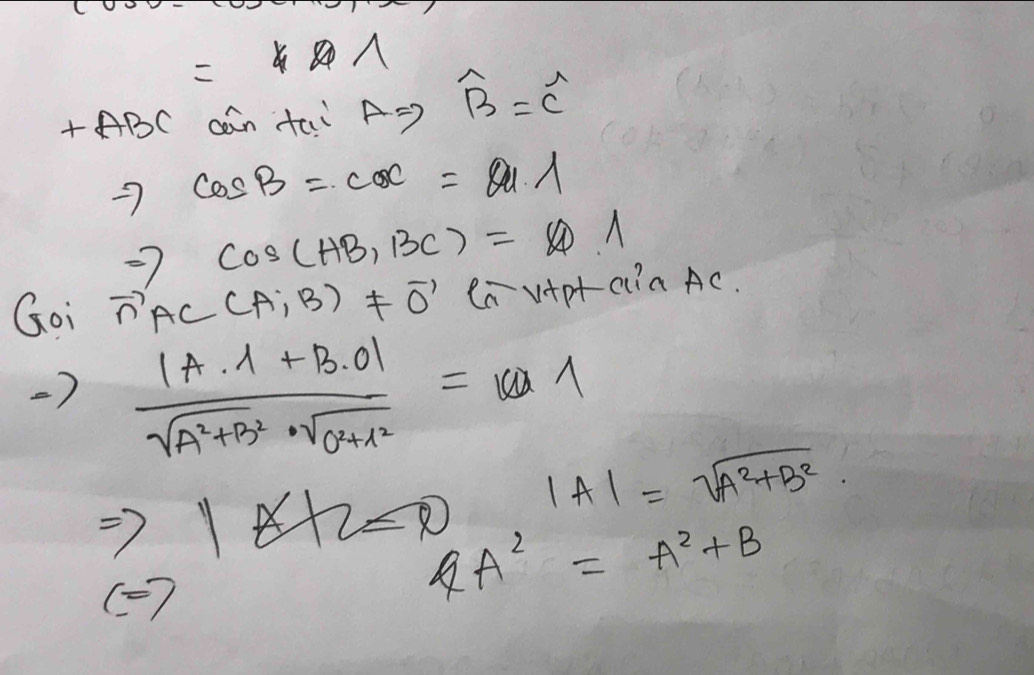 = 1
+ ABC cân tại A => B̂ = Ĉ
=> cosB = cosC = 1
=> cos(AB, BC) = 1
Gọi n⃗AC (A; B) ≠ 0⃗ là vtpt của AC.
=> |A.1 + B.0| / √A²+B² . √0²+1² = 1
=> |A| = √A²+B².
<=> A² = A² + B